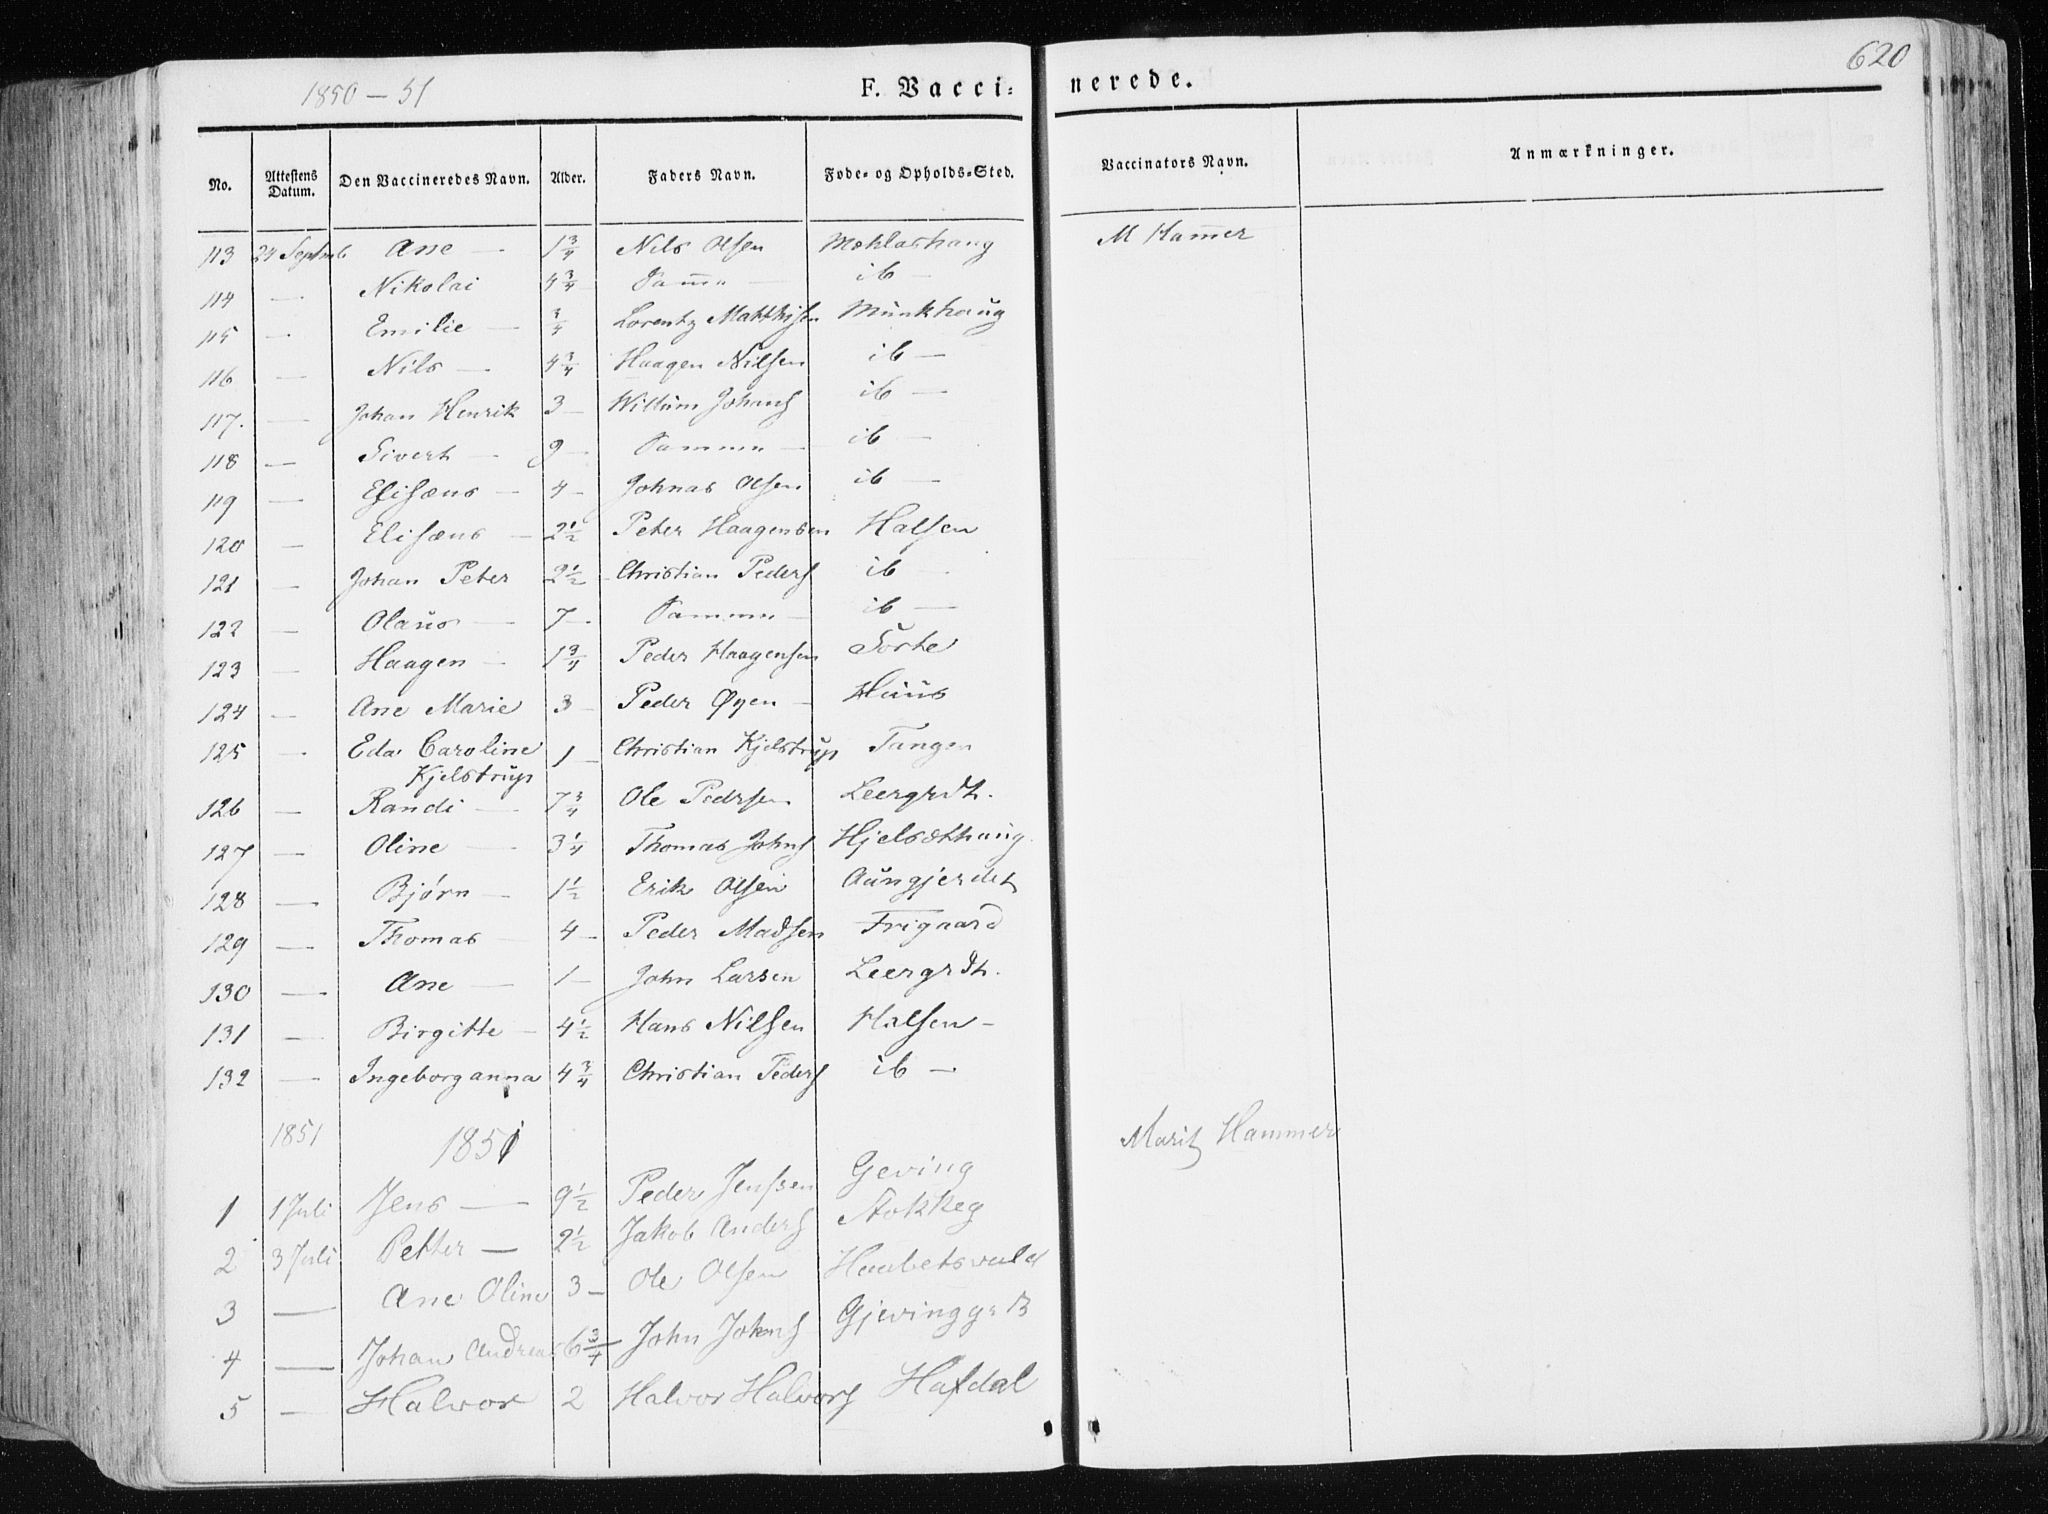 1850 - 51 F. Vacci= nerede. 620
No. Attestens Datum. Den Vaccineredes Navn. Alder. Faders Navn. Føde- og Opholds-Sted. Vaccinators Navn. Anmærkninger.
113 24 Septmb Ane — 1 3/4 Nils Olsen Mæhlashaug M Ham̄er
114 — Nikolai 4 3/4 Sam̄e — ib —
115 — Emilie — 3/4 Lorentz Matthisen Munkhaug
116 — Nils — 4 3/4 Haagen Nilsen ib —
117. — Johan Henrik 3 — Willum Johans ib —
118 — Sivert — 9 — Samme — ib —
119 — Elisæus — 4 — Johnas Olsen ib —
120 — Elisæus — 2 1/2 Peter Haagensen Halsen
121 — Johan Peter 2 1/2 Christian Peders ib —
122 — Olaus — 7 — Samme — ib —
123 — Haagen — 1 3/4 Peder Haagensen Sørte
124 — Ane Marie 3 — Peder Øyen — Huus
125 — Eda Caroline 1 — Christian Kjelstrup Tangen
Kjelstrup
126 — Randi — 7 3/4 Ole Pedersen Leergrdt.
127 — Oline — 3 1/4 Thomas Johns Hjelsæthaug
128 — Bjørn — 1 1/2 Erik Olsen Aungjerdet
129 — Thomas — 4 — Peder Madsen Frigaard
130 — Ane — 1 — John Larsen Leergrdt.
131 — Birgitte — 4 1/2 Hans Nilsen Halsen —
132 — Ingeborganna 4 3/4 Christian Peders ib —
1851 1851 Marit Hammer
1 1 Juli Jens — 9 1/2 Peder Jenssen Geving
2 3 Juli Petter — 2 1/2 Jakob Anders Stokkeg
3 — Ane Oline 3 — Ole Olsen Haabetsvald
4 — Johan Andreas 6 3/4 John Johns
5 — Halvor 2 Halvor Halvors Hafdal